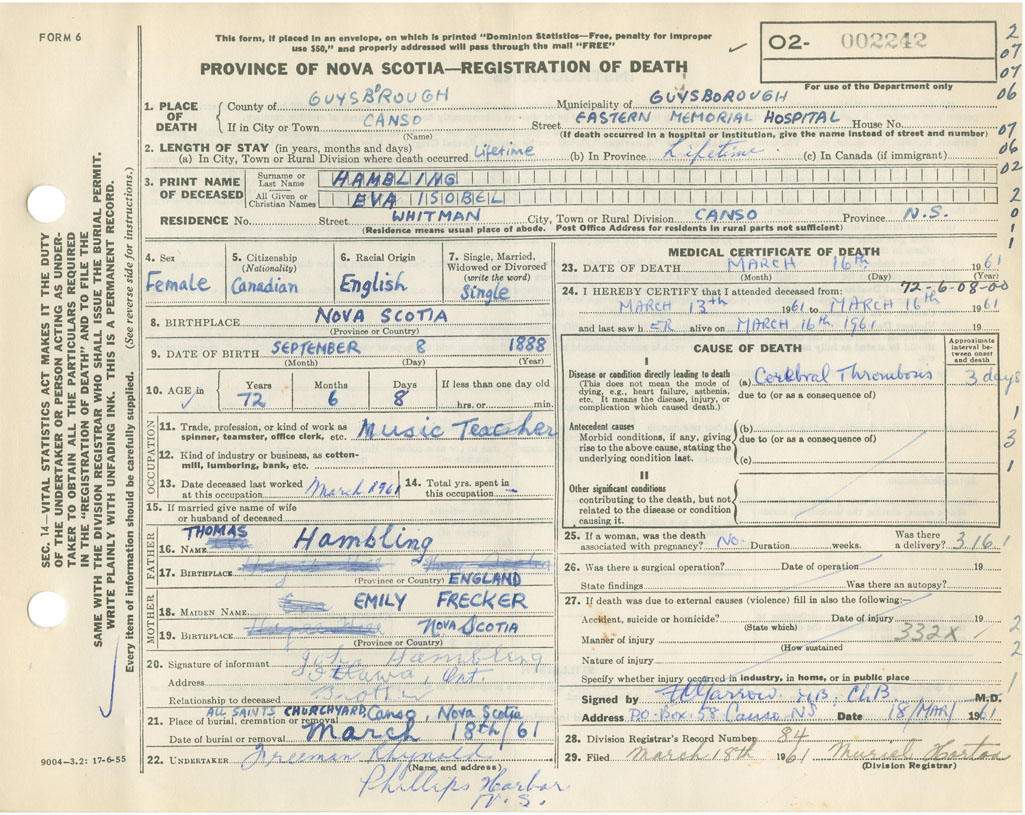 FORM 6
This form, if placed in an envelope, on which is printed "Dominion Statistics—Free, penalty for improper
use $50," and properly addressed will pass through the mail "FREE"
O2- 002242
For use of the Department only
PROVINCE OF NOVA SCOTIA—REGISTRATION OF DEATH
2
07
07
06
07
06
02
2
0
1
1
1. PLACE OF DEATH
County of GUYSB'ROUGH Municipality of GUYSBOROUGH
If in City or Town CANSO Street EASTERN MEMORIAL HOSPITAL House No.
(Name) (If death occurred in a hospital or institution, give the name instead of street and number)
2. LENGTH OF STAY (in years, months and days)
(a) In City, Town or Rural Division where death occurred Lifetime (b) In Province Lifetime (c) In Canada (if immigrant)
3. PRINT NAME OF DECEASED
Surname or Last Name HAMBLING
All Given or Christian Names EVA ISOBEL
RESIDENCE No. Street WHITMAN City, Town or Rural Division CANSO Province N.S.
(Residence means usual place of abode. Post Office Address for residents in rural parts not sufficient)
4. Sex
Female
5. Citizenship
(Nationality)
Canadian
6. Racial Origin
English
7. Single, Married,
Widowed or Divorced
(write the word)
Single
8. BIRTHPLACE NOVA SCOTIA
(Province or Country)
9. DATE OF BIRTH SEPTEMBER 8 1888
(Month) (Day) (Year)
10. AGE in
Years Months Days If less than one day old
72 6 8 hrs. or min.
OCCUPATION
11. Trade, profession, or kind of work as
spinner, teamster, office clerk, etc. Music Teacher
12. Kind of industry or business, as cotton-
mill, lumbering, bank, etc.
13. Date deceased last worked
at this occupation March 1961
14. Total yrs. spent in
this occupation
15. If married give name of wife
or husband of deceased
FATHER
THOMAS
16. NAME Hambling
17. BIRTHPLACE
(Province or Country) ENGLAND
MOTHER
18. MAIDEN NAME EMILY FRECKER
19. BIRTHPLACE NOVA SCOTIA
(Province or Country)
20. Signature of informant John Hambling
Address Ottawa, Ont.
Relationship to deceased Brother
ALL SAINTS CHURCHYARD
21. Place of burial, cremation or removal Canso, Nova Scotia
Date of burial or removal March 18th/61
22. UNDERTAKER Freeman
(Name and address)
Phillips Harbor
N.S.
MEDICAL CERTIFICATE OF DEATH
23. DATE OF DEATH MARCH 16th 1961
(Month) (Day) (Year)
72-6-08-00
24. I HEREBY CERTIFY that I attended deceased from:
MARCH 13th 1961 to MARCH 16th 1961
and last saw h ER alive on MARCH 16th 1961 19
CAUSE OF DEATH
Approximate
interval be-
tween onset
and death
I
Disease or condition directly leading to death
(This does not mean the mode of
dying, e.g., heart failure, asthenia,
etc. It means the disease, injury, or
complication which caused death.)
(a) Cerebral Thrombosis 3 days
due to (or as a consequence of)
Antecedent causes
Morbid conditions, if any, giving
rise to the above cause, stating the
underlying condition last.
(b)
due to (or as a consequence of)
(c)
1
3
1
II
Other significant conditions
contributing to the death, but not
related to the disease or condition
causing it.
25. If a woman, was the death
associated with pregnancy? No. Duration weeks. Was there
a delivery? 3161
26. Was there a surgical operation? Date of operation 19
State findings Was there an autopsy?
27. If death was due to external causes (violence) fill in also the following:—
Accident, suicide or homicide? Date of injury 19
(State which)
332X
Manner of injury
(How sustained
Nature of injury
Specify whether injury occurred in industry, in home, or in public place
2
2
1
Signed by M.B. Ch.B. M.D.
Address P.O. Box 58 Canso NS Date 18/MAR/ 1961
28. Division Registrar's Record Number 84
29. Filed March 18th 1961 Muriel
(Division Registrar)
SEC. 14—VITAL STATISTICS ACT MAKES IT THE DUTY
OF THE UNDERTAKER OR PERSON ACTING AS UNDER-
TAKER TO OBTAIN ALL THE PARTICULARS REQUIRED
IN THE "REGISTRATION OF DEATH" AND TO FILE THE
SAME WITH THE DIVISION REGISTRAR WHO SHALL ISSUE THE BURIAL PERMIT.
WRITE PLAINLY WITH UNFADING INK. THIS IS A PERMANENT RECORD.
Every item of information should be carefully supplied. (See reverse side for instructions.)
9004—3.2: 17-6-55